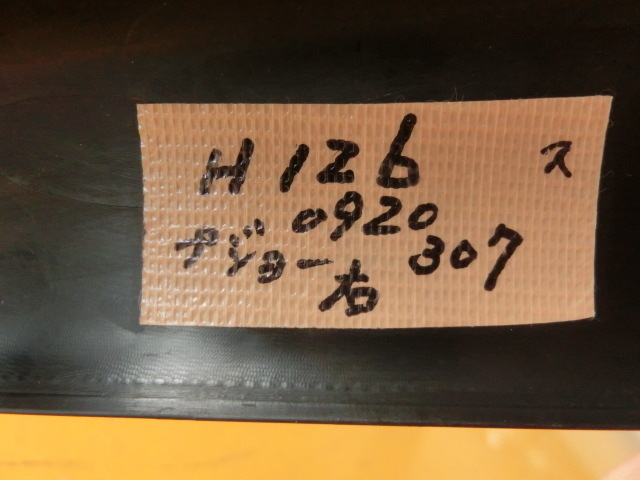 H126 ス
0920
プジョー 307
右